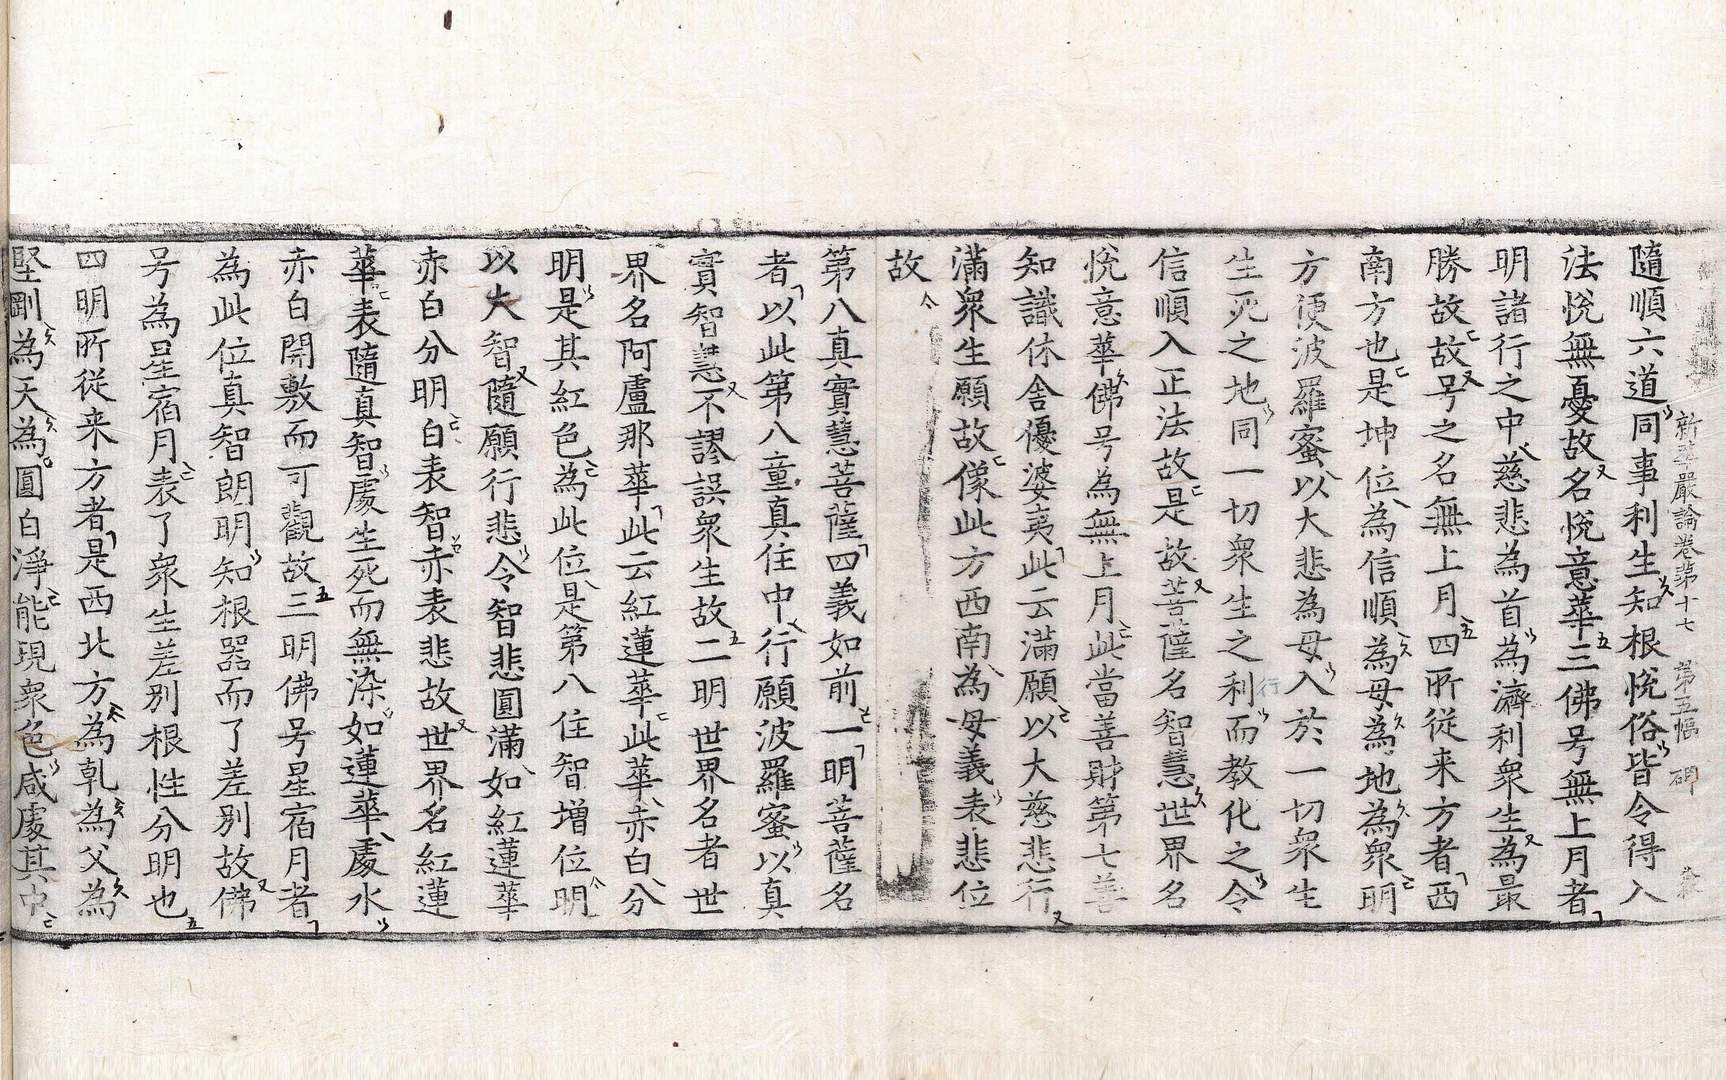 新華嚴論卷第十七 第五幅 碑
隨順六道同事利生知根悅俗皆令得入
法悅無憂故名悅意華三佛号無上月者
明諸行之中慈悲為首為濟利衆生為最
勝故故号之名無上月四所從来方者西
南方也是坤位為信順為母為地為衆明
方便波羅蜜以大悲為母入於一切衆生
生死之地同一切衆生之利而教化之令
行
信順入正法故是故菩薩名智慧世界名
悅意華佛号為無上月此當善財第七善
知識休舍優婆夷此云滿願以大慈悲行
滿衆生願故像此方西南為母義表悲位
故
第八真實慧菩薩四義如前一明菩薩名
者以此第八童真住中行願波羅蜜以真
實智慧不謬誤衆生故二明世界名者世
界名阿盧那華此云紅蓮華此華赤白分
明是其紅色為此位是第八住智增位明
以大智隨願行悲令智悲圓滿如紅蓮華
赤白分明白表智赤表悲故世界名紅蓮
華表隨真智處生死而無染如蓮華處水
赤白開敷而可觀故三明佛号星宿月者
為此位真智朗明知根器而了差別故佛
号為星宿月表了衆生差別根性分明也
四明所從来方者是西北方為乹為父為
堅剛為天為圓白淨能現衆色咸處其中